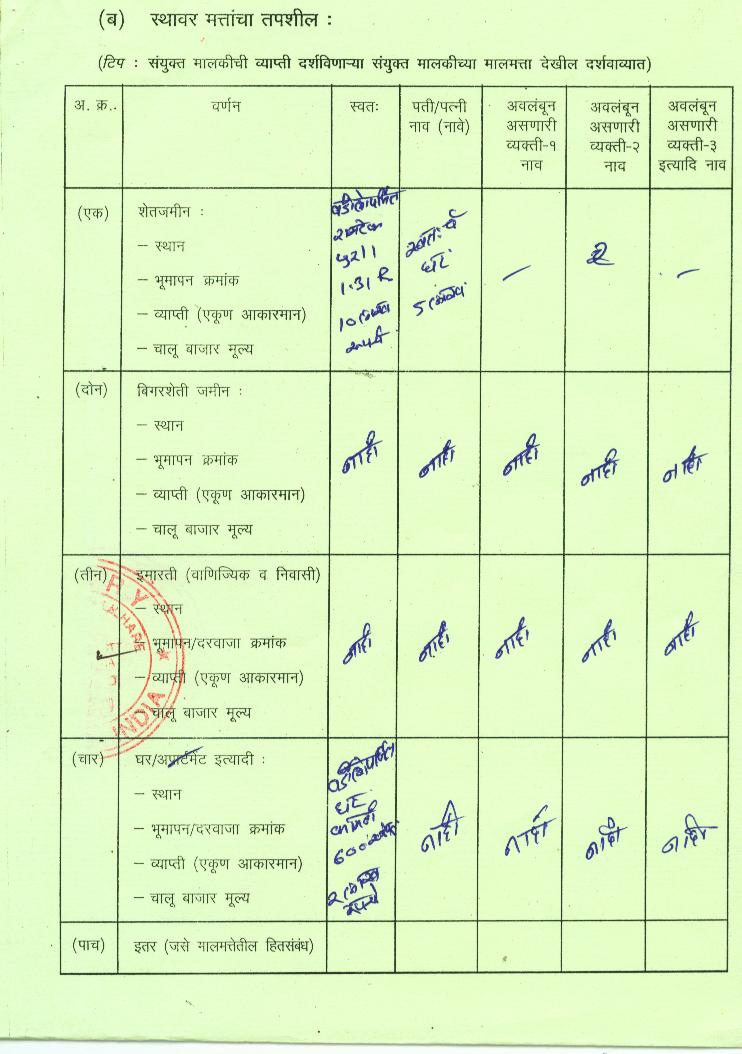 (ब) स्थावर मत्तांचा तपशील :
(टिप : संयुक्त मालकीची व्याप्ती दर्शविणाऱ्या संयुक्त मालकीच्या मालमत्ता देखील दर्शवाव्यात)
अ. क्र.. वर्णन स्वतः पती/पत्नी नाव (नावे) अवलंबून असणारी व्यक्ती-१ नाव अवलंबून असणारी व्यक्ती-२ नाव अवलंबून असणारी व्यक्ती-३ इत्यादि नाव
(एक) शेतजमीन :
– स्थान
– भूमापन क्रमांक
– व्याप्ती (एकूण आकारमान)
– चालू बाजार मूल्य
वडीलोपार्जित
रामटेक
५२।1
1.31 R
10 लाख
रुपये
स्वतःचे
घर
5 लाख
–
२
–
(दोन) बिगरशेती जमीन :
– स्थान
– भूमापन क्रमांक
– व्याप्ती (एकूण आकारमान)
– चालू बाजार मूल्य
नाही नाही नाही नाही नाही
(तीन) इमारती (वाणिज्यिक व निवासी)
– स्थान
– भूमापन/दरवाजा क्रमांक
– व्याप्ती (एकूण आकारमान)
– चालू बाजार मूल्य
नाही नाही नाही नाही नाही
PY
HARE
INDIA
(चार) घर/अपार्टमेंट इत्यादी :
– स्थान
– भूमापन/दरवाजा क्रमांक
– व्याप्ती (एकूण आकारमान)
– चालू बाजार मूल्य
वडीलोपार्जित
घर
कामठी
600
२ लाख
रुपये
नाही नाही नाही नाही
(पाच) इतर (जसे मालमत्तेतील हितसंबंध)